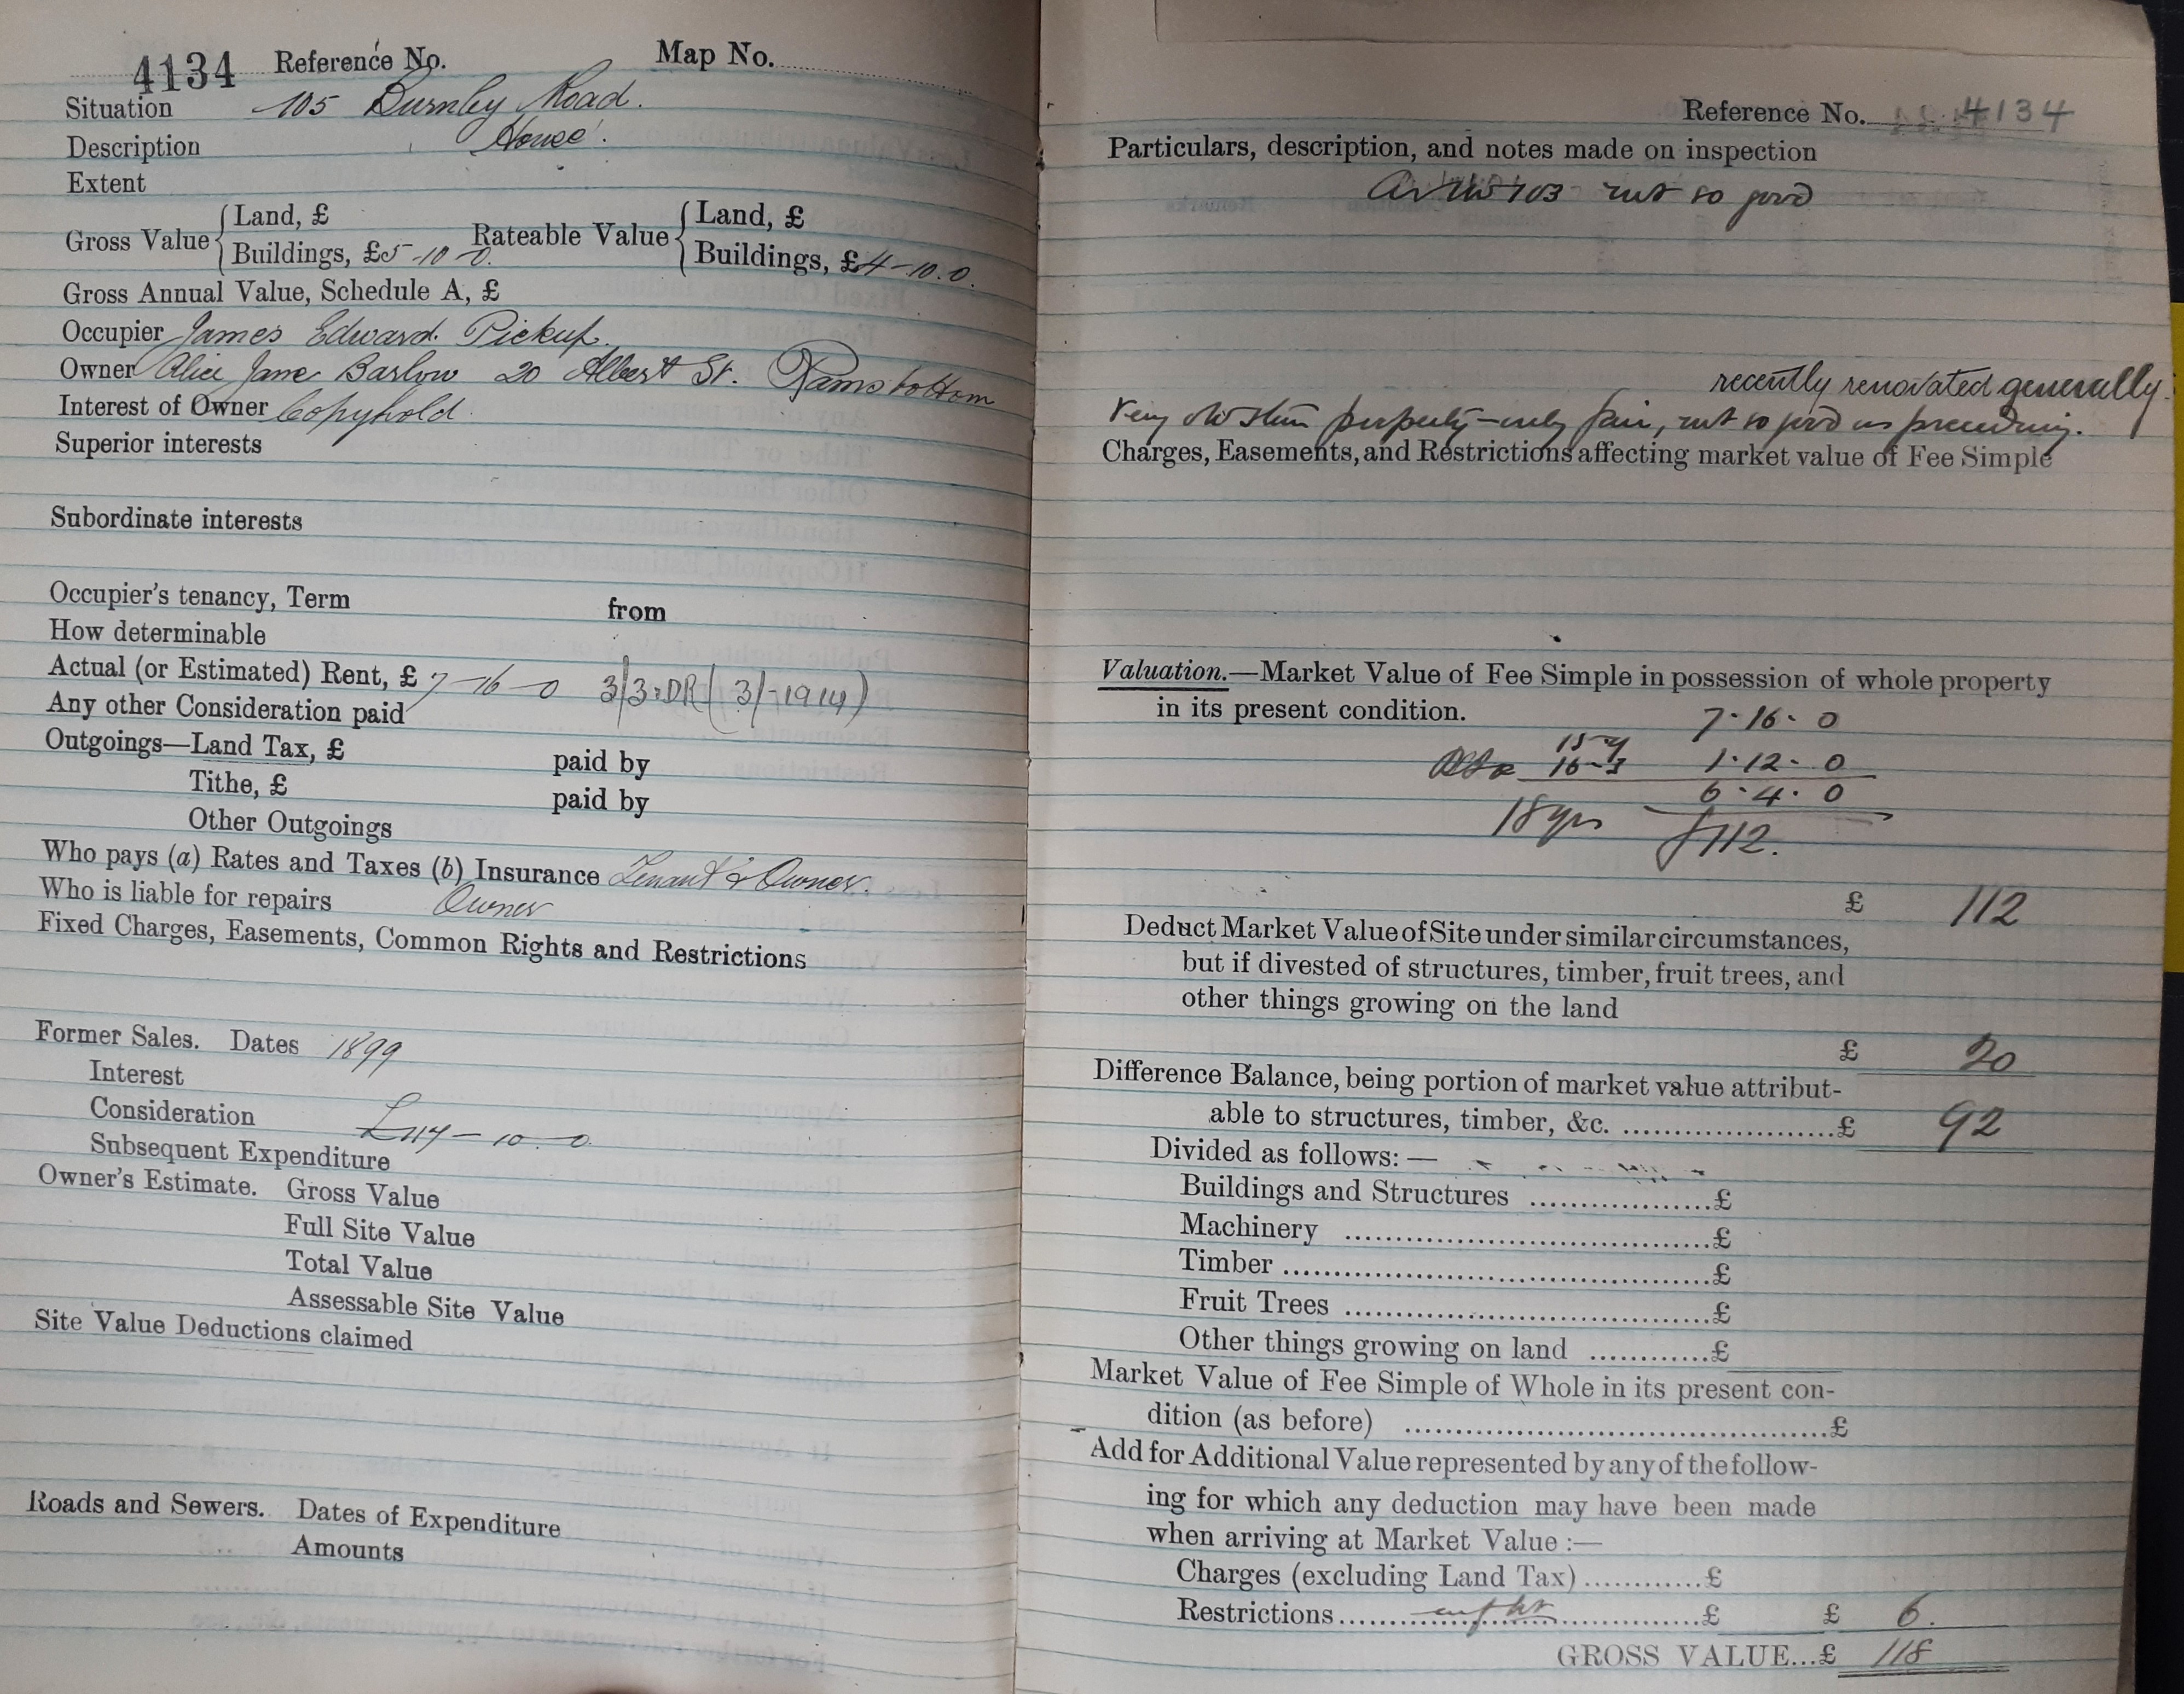 4134 Reference No. Map No.
Situation 105 Burnley Road.
Description House.
Extent
Gross Value { Land, £
Buildings, £5-10-0. Rateable Value { Land, £
Buildings, £4-10.0.
Gross Annual Value, Schedule A, £
Occupier James Edward Pickup.
Owner Alice Jane Barlow 20 Albert St. Ramsbottom
Interest of Owner Copyhold.
Superior interests
Subordinate interests
Occupier's tenancy, Term from
How determinable
Actual (or Estimated) Rent, £ 7-16-0 3/3 DR (3/-1914)
Any other Consideration paid
Outgoings—Land Tax, £ paid by
Tithe, £ paid by
Other Outgoings
Who pays (a) Rates and Taxes (b) Insurance Tenant & Owner.
Who is liable for repairs Owner
Fixed Charges, Easements, Common Rights and Restrictions
Former Sales. Dates 1899
Interest
Consideration £114-10-0.
Subsequent Expenditure
Owner's Estimate. Gross Value
Full Site Value
Total Value
Assessable Site Value
Site Value Deductions claimed
Roads and Sewers. Dates of Expenditure
Amounts
Reference No. 4134
Particulars, description, and notes made on inspection
103 not so good
recently renovated generally.
Very old property-only fair, not so good as preceding.
Charges, Easements, and Restrictions affecting market value of Fee Simple
Valuation.—Market Value of Fee Simple in possession of whole property
in its present condition.
7.16.0
15-4
16-3 1.12.0
6.4.0
18 yrs £112.
£ 112
Deduct Market Value of Site under similar circumstances,
but if divested of structures, timber, fruit trees, and
other things growing on the land
£ 20
Difference Balance, being portion of market value attribut-
able to structures, timber, &c. ......................£ 92
Divided as follows: —
Buildings and Structures ..................£
Machinery ...................................£
Timber .........................................£
Fruit Trees ...................................£
Other things growing on land ............£
Market Value of Fee Simple of Whole in its present con-
dition (as before) .........................................£
Add for Additional Value represented by any of the follow-
ing for which any deduction may have been made
when arriving at Market Value :—
Charges (excluding Land Tax)............£
Restrictions..................................£ £ 6.
GROSS VALUE...£ 118